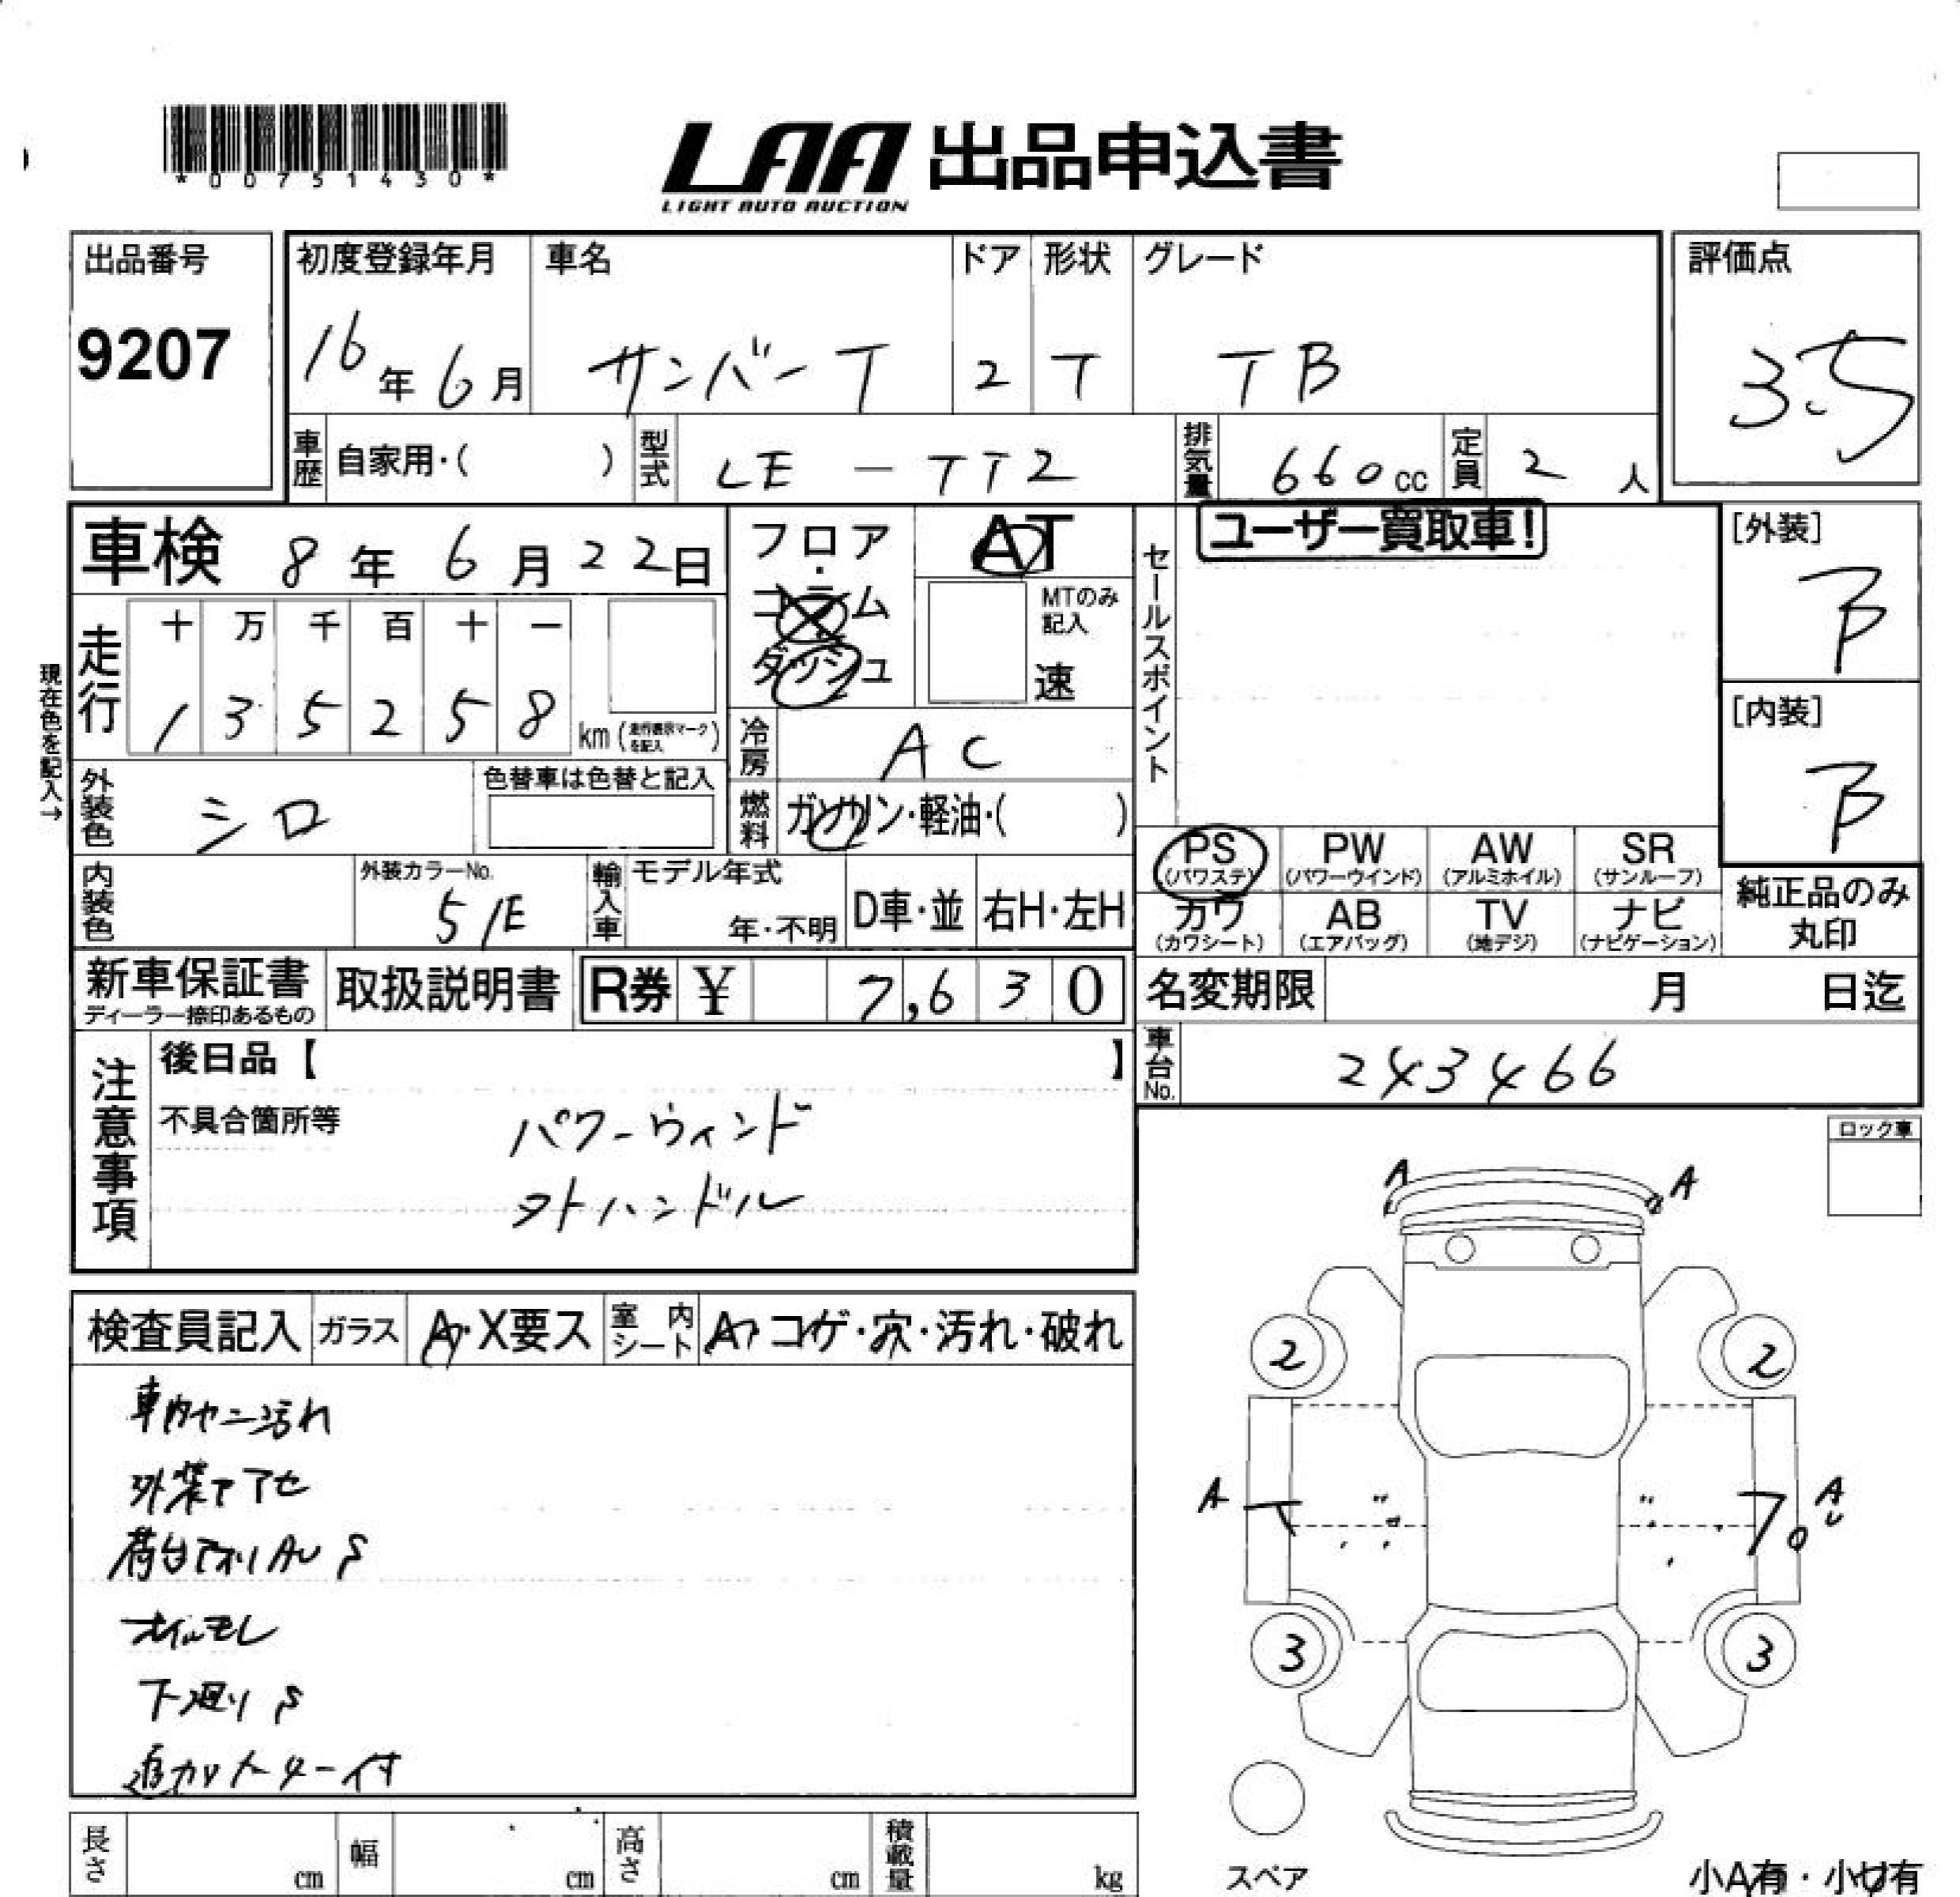 *00751430*
LAA 出品申込書
LIGHT AUTO AUCTION
出品番号
9207
初度登録年月
16年6月
車名
サンバーT
ドア
2
形状
T
グレード
TB
評価点
3.5
車歴
自家用・( )
型式
LE-TT2
排気量
660cc
定員
2人
車検 8年6月22日
フロア・
コラム
ダッシュ
AT
MTのみ
記入
速
セールスポイント
ユーザー買取車!
[外装]
[内装]
現在色を記入→
走行
十 万 千 百 十 一
1 3 5 2 5 8 km (走行表示マークを記入)
冷房
AC
外装色
シロ
色替車は色替と記入
燃料
ガソリン・軽油・( )
PS
(パワステ)
PW
(パワーウインド)
AW
(アルミホイル)
SR
(サンルーフ)
カワ
(カワシート)
AB
(エアバッグ)
TV
(地デジ)
ナビ
(ナビゲーション)
純正品のみ
丸印
内装色
外装カラーNo.
51E
輸入車
モデル年式
年・不明
D車・並
右H・左H
新車保証書
ディーラー捺印あるもの
取扱説明書
R券 ¥ 7,630
名変期限 月 日迄
車台No.
243466
注意事項
後日品【 】
不具合箇所等
パワーウィンド
外ハンドル
ロック車
検査員記入
ガラス
A・X要ス
室内シート
A・コゲ・穴・汚れ・破れ
車内ヤニ汚れ
下廻りS
A A
2 2
A A
U
3 3
スペア
小A有・小U有
長さ cm
幅 cm
高さ cm
積載量 kg